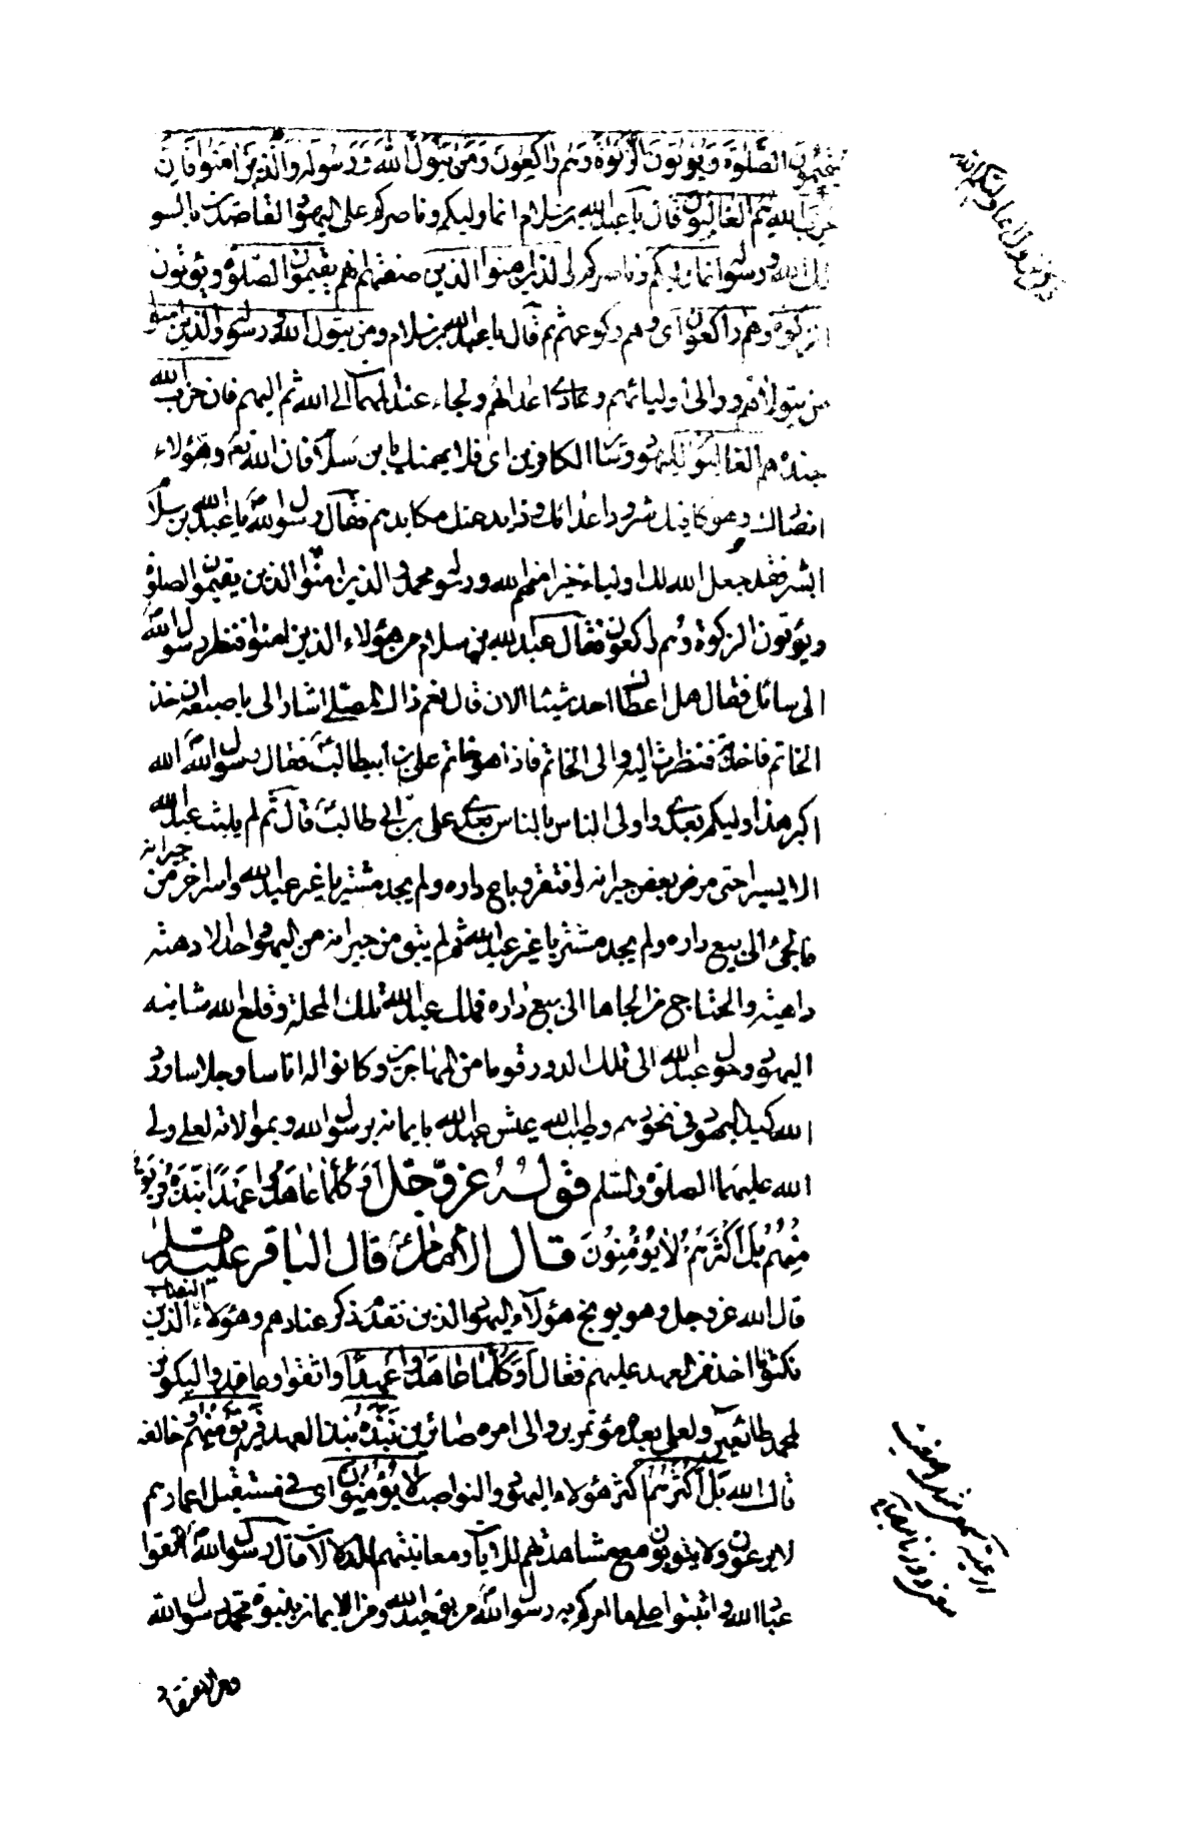 يقيمون الصَّلوٰةَ وَيُؤتُونَ الزَّكوٰةَ وَهُم رَاكِعُونَ وَمَن يَتَوَلَّ اللهَ وَرَسُولَهُ وَالَّذِينَ اٰمَنُوا فَاِنَّ
حزب الله هم الغالبون قال يا عبدالله بن سلام انما وليكم وناصركم على اليهود القاصدين بالسوء
لك الله ورسوله انما وليكم وناصركم والذين امنوا الذين صفتهم انهم يقيمون الصلوة ويؤتون
الزكوة وهم راكعون اى وهم فى ركوعهم ثم قال يا عبدالله بن سلام ومن يتول الله ورسوله والذين امنوا
من يتولاهم ووالى اوليائهم وعادى اعدائهم ولجاء عند المهمات الى الله ثم اليهم فان حزب الله
جنده هم الغالبون لليهود وسائر الكافرين اى فلا يهمنك يا بن سلام فان الله تعالى وهؤلاء
انصارك وهو كافيك شرور اعدائك وذايد عنك مكايدهم فقال رسول الله ص يا عبدالله بن سلام
ابشر فقد جعل الله لك اولياء خيرا منهم الله ورسوله محمد والذين امنوا الذين يقيمون الصلوة
ويؤتون الزكوة وهم راكعون فقال عبدالله بن سلام من هؤلاء الذين امنوا فنظر رسول الله
الى سائل فقال هل اعطاك احد شيئا الان قال نعم ذاك المصلى اشار الى باصبعه ان خذ
الخاتم فاخذته فنظرت اليه والى الخاتم فاذا هو خاتم على بن ابيطالب فقال رسول الله ص الله
اكبر هذا وليكم بعدى واولى الناس بالناس بعدى على بن ابى طالب قال ثم لم يلبث عبدالله
الا يسيرا حتى مرض بعض جيرانه وافتقر وباع داره ولم يجد مشتريا غير عبدالله واسر اخر من
جيرانه
فالجئ الى بيع داره ولم يجد مشتريا غير عبدالله ثم لم يبق من جيرانه من اليهود احد الا دهته
داهية واحتاج من اجلها الى بيع داره فملك عبدالله تلك المحلة وقلع الله شافة
اليهود وحول عبدالله الى تلك الدور قوما من المهاجرين وكانوا له اناسا وجلاسا ورد
الله كيد اليهود فى نحورهم وطيب الله عيش عبدالله بايمانه برسول الله وبموالاته لعلى ولى
الله عليهما الصلوة والسلم قوله عز وجل اَوَكُلَّمَا عَاهَدُوا عَهْدًا نَبَذَهُ فَرِيقٌ
مِنْهُمْ بَلْ اَكْثَرُهُمْ لا يُؤْمِنُونَ قال الامام قال الباقر عليه السلم
قال الله عز وجل وهو يوبخ هؤلاء اليهود الذين تقدم ذكر عنادهم وهؤلاء النصاب الذين
نكثوا ما اخذ من العهد عليهم فقال اَوَكُلَّمَا عَاهَدُوا عَهْدًا واثقوا وعاقدوا ليكونن
لمحمد طائعين ولعلى بعده مؤتمرين والى امره صائرين نَبَذَهُ نبذ العهد فَرِيقٌ مِنْهُمْ وخالفه
قال الله بَلْ اَكْثَرُهُمْ اكثر هؤلاء اليهود والنواصب لا يُؤْمِنُونَ اى فى مستقبل اعمارهم
لا يرعون ولا يتوبون مع مشاهدتهم للايات ومعاينتهم للدلالات قال رسول الله ص اتقوا
عباد الله واثبتوا على ما امركم به رسول الله من توحيد الله ومن الايمان بنبوة محمد رسول الله
ومن الاعتقاد